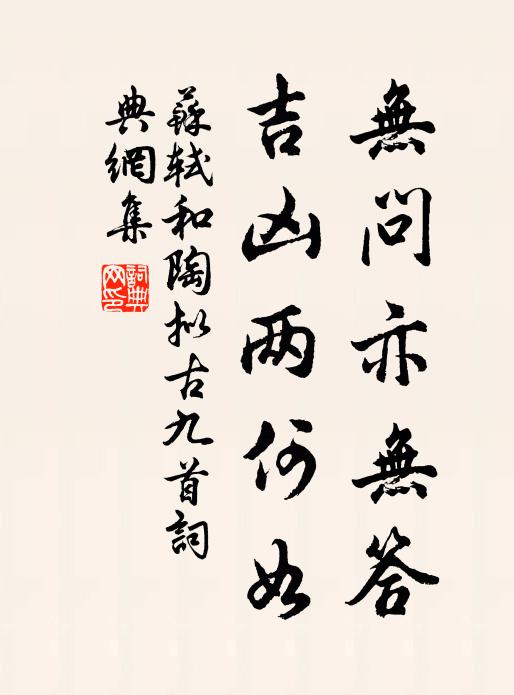 無問亦無答
吉凶两何如
蘇軾和陶拟古九首詞
典網集
詞典
网印